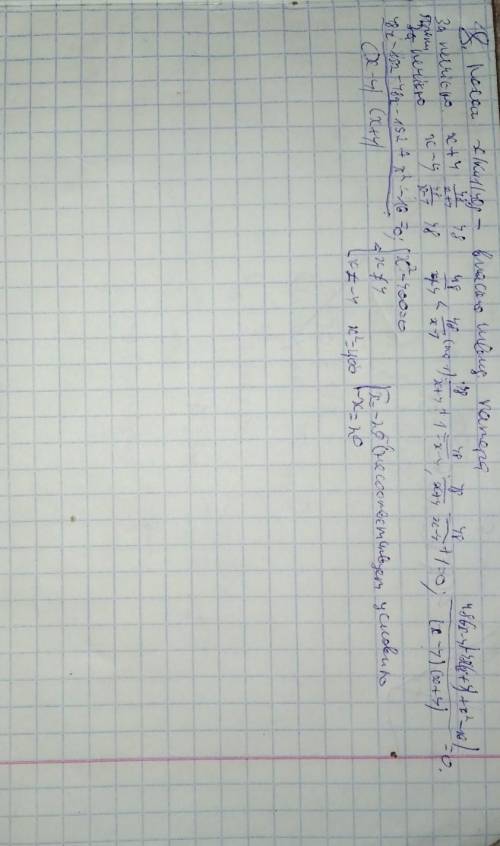 8. Нехай x км/год – власна швид. катера
За течією x+4 48/x+4 48
Проти течії x-4 48/x-4 48
48/x+4 < 48/x-4 (на 1) 48/x+4 + 1 = 48/x-4; 48/x+4 - 48/x-4 + 1 = 0; 48(x-4)-48(x+4)+x²-16/(x-4)(x+4) = 0.
48x-192-48x-192+x²-16/(x-4)(x+4) = 0; x²-400=0
x≠4
x≠-4 x²=400
x=-20 (не соответствует условию
x=20